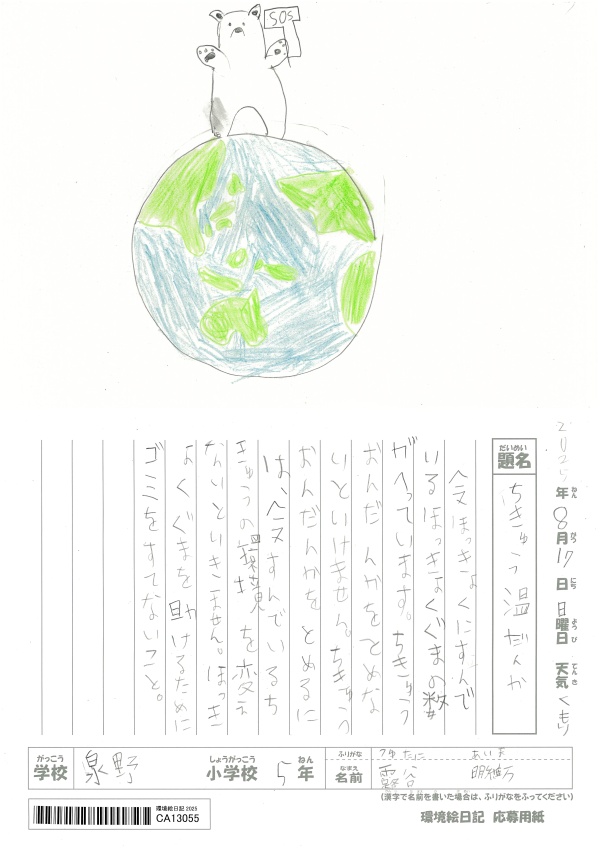 SOS
2025年8月17日日曜日 天気 くもり
ねん がつ にち ようび てんき
だいめい
題名 ちきゅう温だんか
今ほっきょくにすんで
いるほっきょくぐまの数
がへっています。ちきゅう
おんだんかをとめな
いといけません。ちきゅう
おんだんかをとめるに
は、今すんでいるち
きゅうの環境を変え
ないといきません。ほっき
ょくぐまを助けるために
ゴミをすてないこと。
がっこう しょうがっこう ねん ふりがな
学校 泉野 小学校 5年
なまえ
名前
(漢字で名前を書いた場合は、ふりがなをふってください)
環境絵日記 2025
CA13055
環境絵日記 応募用紙